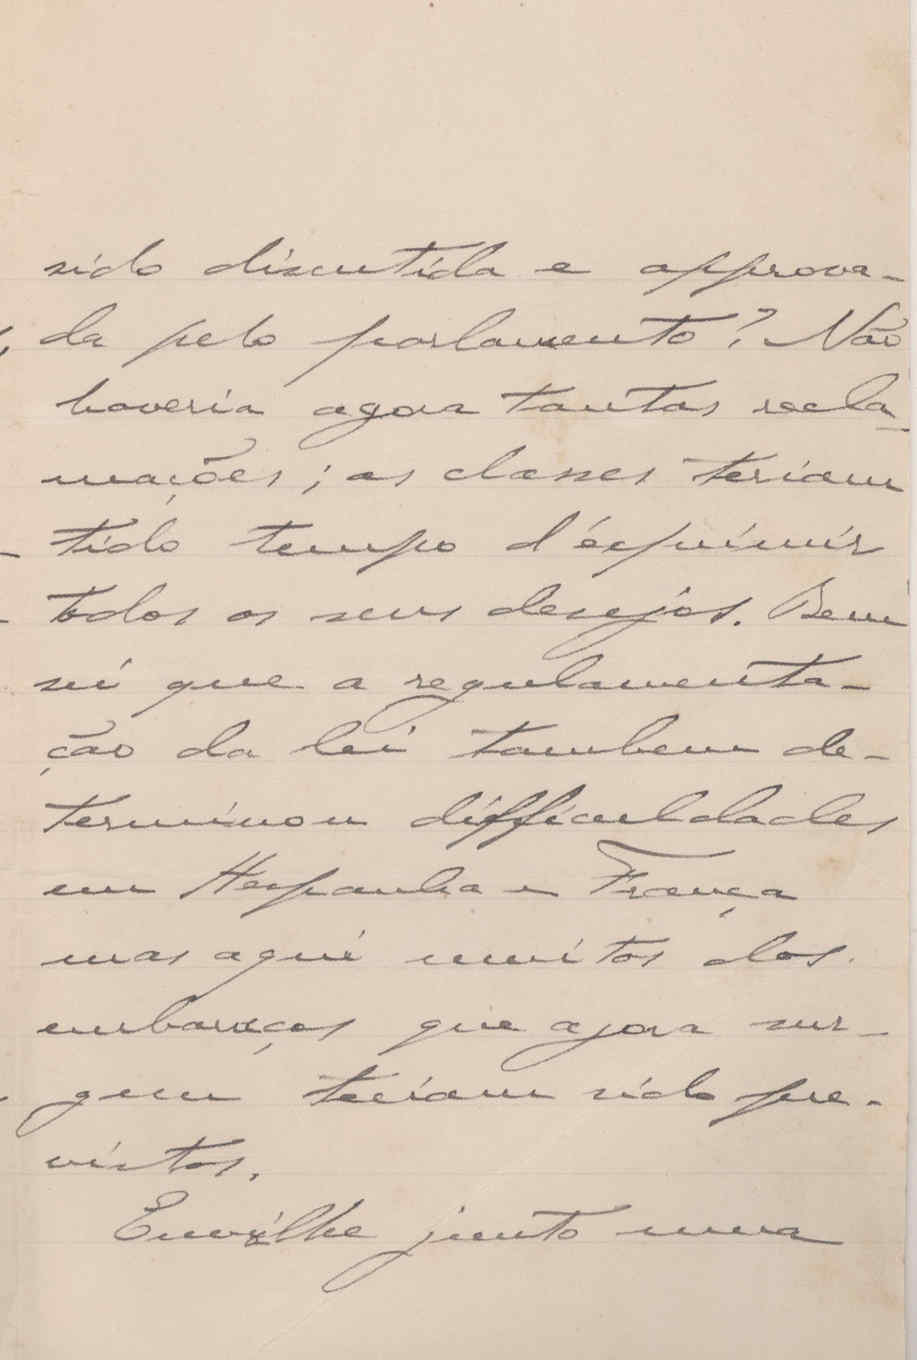 sido discutida e approva-
da pelo parlamento? Não
haveria agora tantas recla-
mações; as classes teriam
tido tempo d'exprimir
todos os seus desejos. Bem
sei que a regulamenta-
ção da lei tambem de-
terminou difficuldades
em Hespanha e França
mas aqui muitos dos
embaraços que agora sur-
gem teriam sido pre-
vistos.
Envio-lhe junto uma